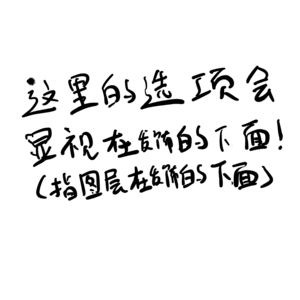 这里的选项会
显视在发饰的下面！
（指图层在发饰的下面）